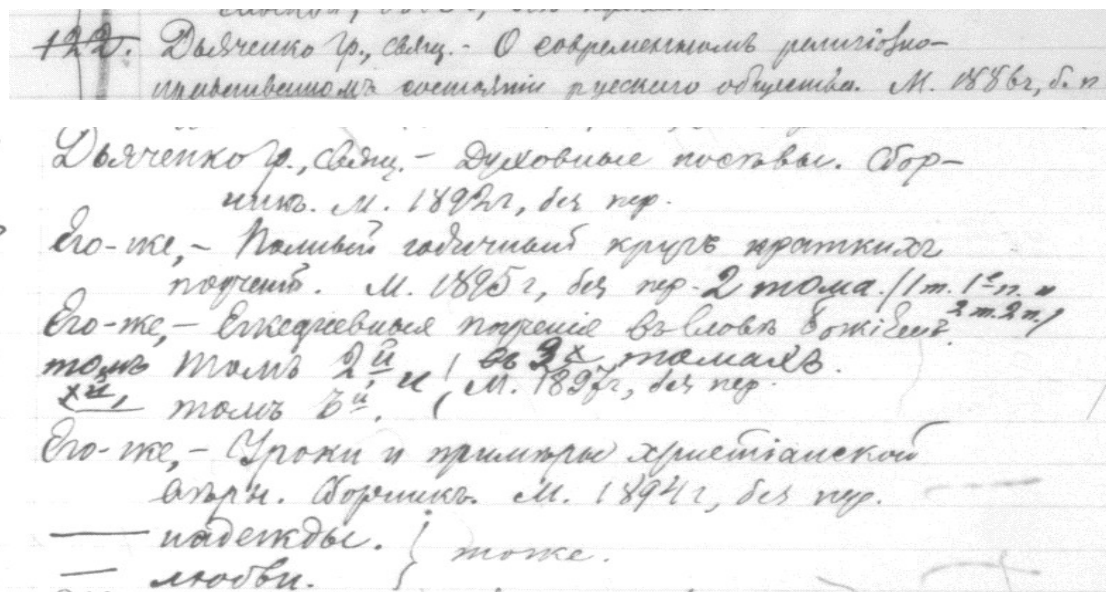 122. Дьяченко Гр., свящ. - О современномъ религіозно-
нравственномъ состояніи русскаго общества. М. 1886г, б. п
Дьяченко Гр., свящ. - Духовные посѣвы. Сбор-
никъ. М. 1892г, без пер.
Его-же, - Полный годичный кругъ краткихъ
поученій. М. 1895г, без пер. 2 тома. (1 т. 1е п. и
2 т. 2 п.)
Его-же, - Ежедневныя поученія въ Словѣ Божіемъ.
томъ томъ 2й, и въ 3х томахъ.
М. 1897г, без пер.
томъ 3й.
Его-же, - Уроки и примѣры христіанской
вѣры. Сборникъ. М. 1894г, без пер.
— надежды. } тоже.
— любви.